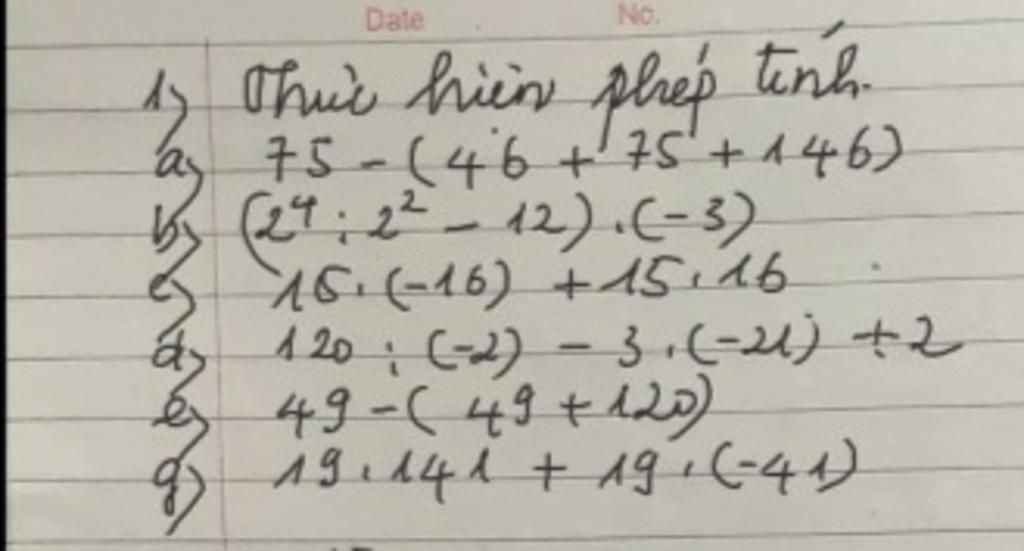 Date No.
1) Thực hiện phép tính.
a) 75 - (46 + 75 + 146)
b) (2⁴ : 2² - 12) . (-3)
c) 15 . (-16) + 15 . 16
d) 120 : (-2) - 3 . (-21) + 2
e) 49 - (49 + 120)
g) 19 . 141 + 19 . (-41)